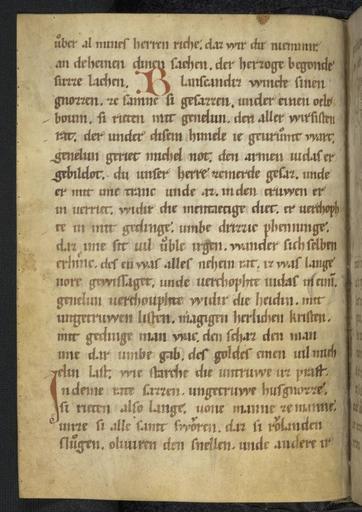 uber al mines herren riche. daz wir dir niemmir
an deheinen dinen sachen. der herzoge begonde
suze lachen. Blanscandiz winete sinen
gnozen. ze samne si gesazen. under einen oele
boum. si rieten mit genelun. den aller wirsisten
rat. der under disem himele ie geurumt wart.
genelun geriet michel not. den armen iudas er
gebildot. du unser herre ze merde gesaz. unde
er mit ime tranc unde az. in den truwen er
in uerriet. widir die meintaetige diet. er uerchoph
te in mit gedinge. umbe drizzic phenninge.
daz ime sit uil uble irgen. wander sich selben
erhinc. des en was alles nehein rat. iz was lange
uore gewissaget. unde uerchophte iudas in einin.
genelun uerchouphte widir die heidin. mit
ungetruwen listen. manigen herlichen kristen.
mit gedinge man was. den schaz den man
ime dar umbe gab. des goldes einen uil mich
elin last. wie starche die untruwe uz prast.
In deme rate sazzen. ungetruwe husgnozze.
si rieten also lange. uone manne ze manne.
unze si alle samt sworen. daz si rolanden
slugen. oliuiren den snellen. unde andere ir